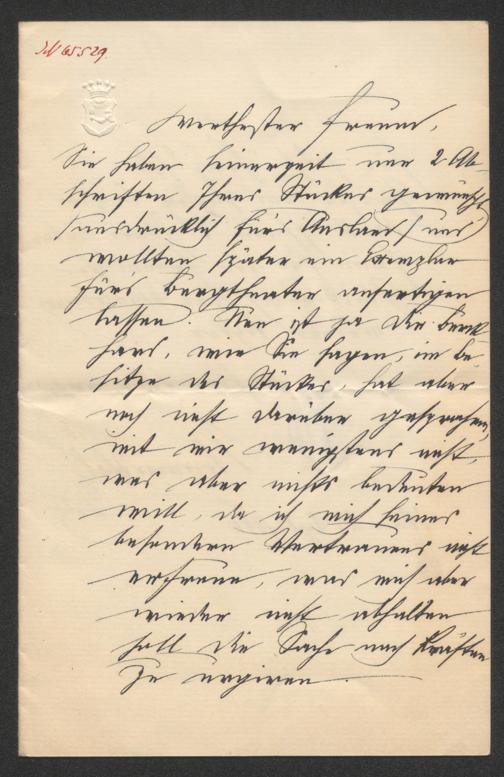 IN 65529
Werthester Freund,
Sie haben seinerzeit nur 2 Ab-
schriften Ihres Stückes gewünscht
/ausdrücklich für's Ausland/ und
wollten später ein Exemplar
für's Burgtheater anfertigen
lassen. Nun ist ja die Burck
hard, wie Sie sagen, im Be-
sitze des Stückes, hat aber
noch nicht darüber gesprochen,
mit mir wenigstens nicht,
was aber nichts bedeuten
will, da ich mich seines
besondern Vertrauens nicht
erfreue, was mich aber
wieder nicht abhalten
soll die Sache nach Kräften
zu urgiren.